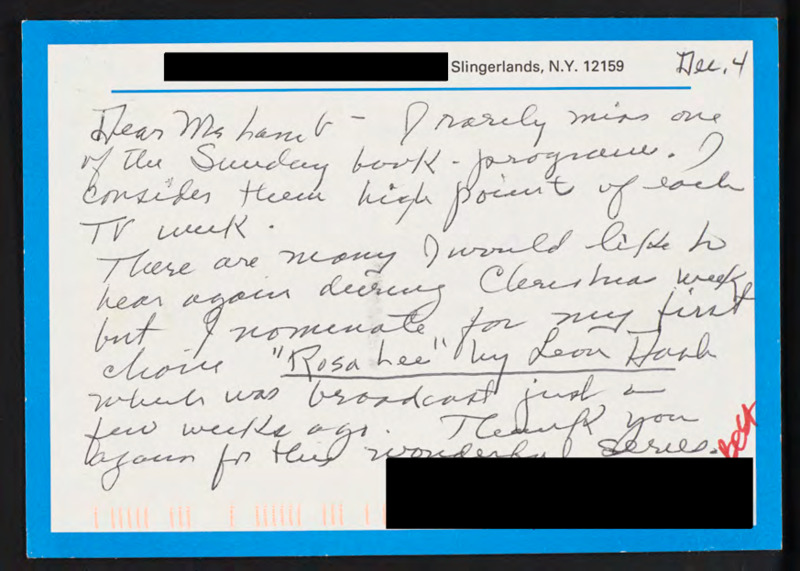 Slingerlands, N.Y. 12159 Dec. 4
Dear Mr Lamb - I rarely miss one
of the Sunday book-programs. I
consider them high point of each
TV week.
There are many I would like to
hear again during Christmas week
but I nominate for my first
choice "Rosa Lee" by Leon Dash
which was broadcast just a
few weeks ago. Thank you
again for this wonderful series.